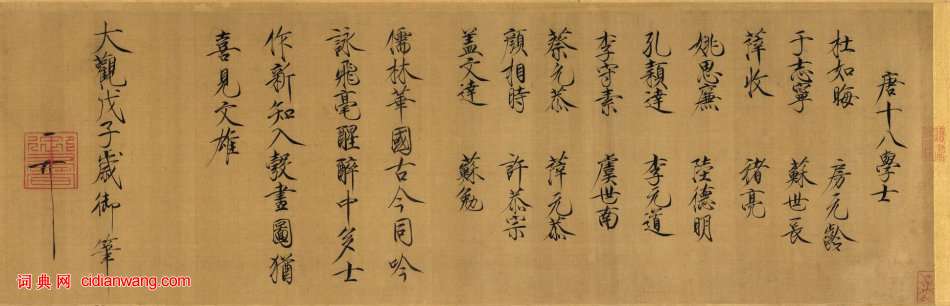 唐十八學士
杜如晦 房元齡
于志寧 蘇世長
薛收 褚亮
姚思廉 陸德明
孔穎達 李元道
李守素 虞世南
蔡元恭 薛元恭
顏相時 許恭宗
蓋文達 蘇勉
儒林華國古今同吟
詠飛毫醒醉中多士
作新知入彀畫圖猶
喜見文雄
大觀戊子歲御筆
御書
词典网 cidianwang.com